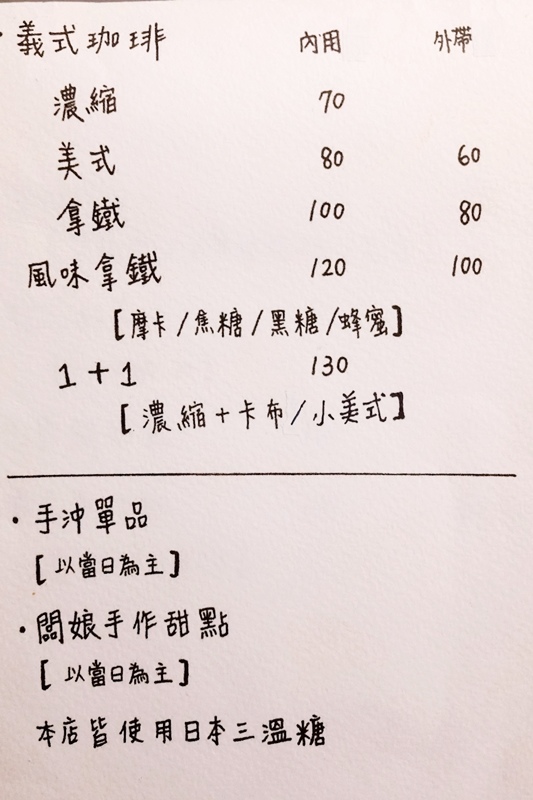 ·義式珈琲 內用 外帶
濃縮 70
美式 80 60
拿鐵 100 80
風味拿鐵 120 100
[摩卡/焦糖/黑糖/蜂蜜]
1+1 130
[濃縮+卡布/小美式]
·手沖單品
[以當日為主]
·闆娘手作甜點
[以當日為主]
本店皆使用日本三溫糖